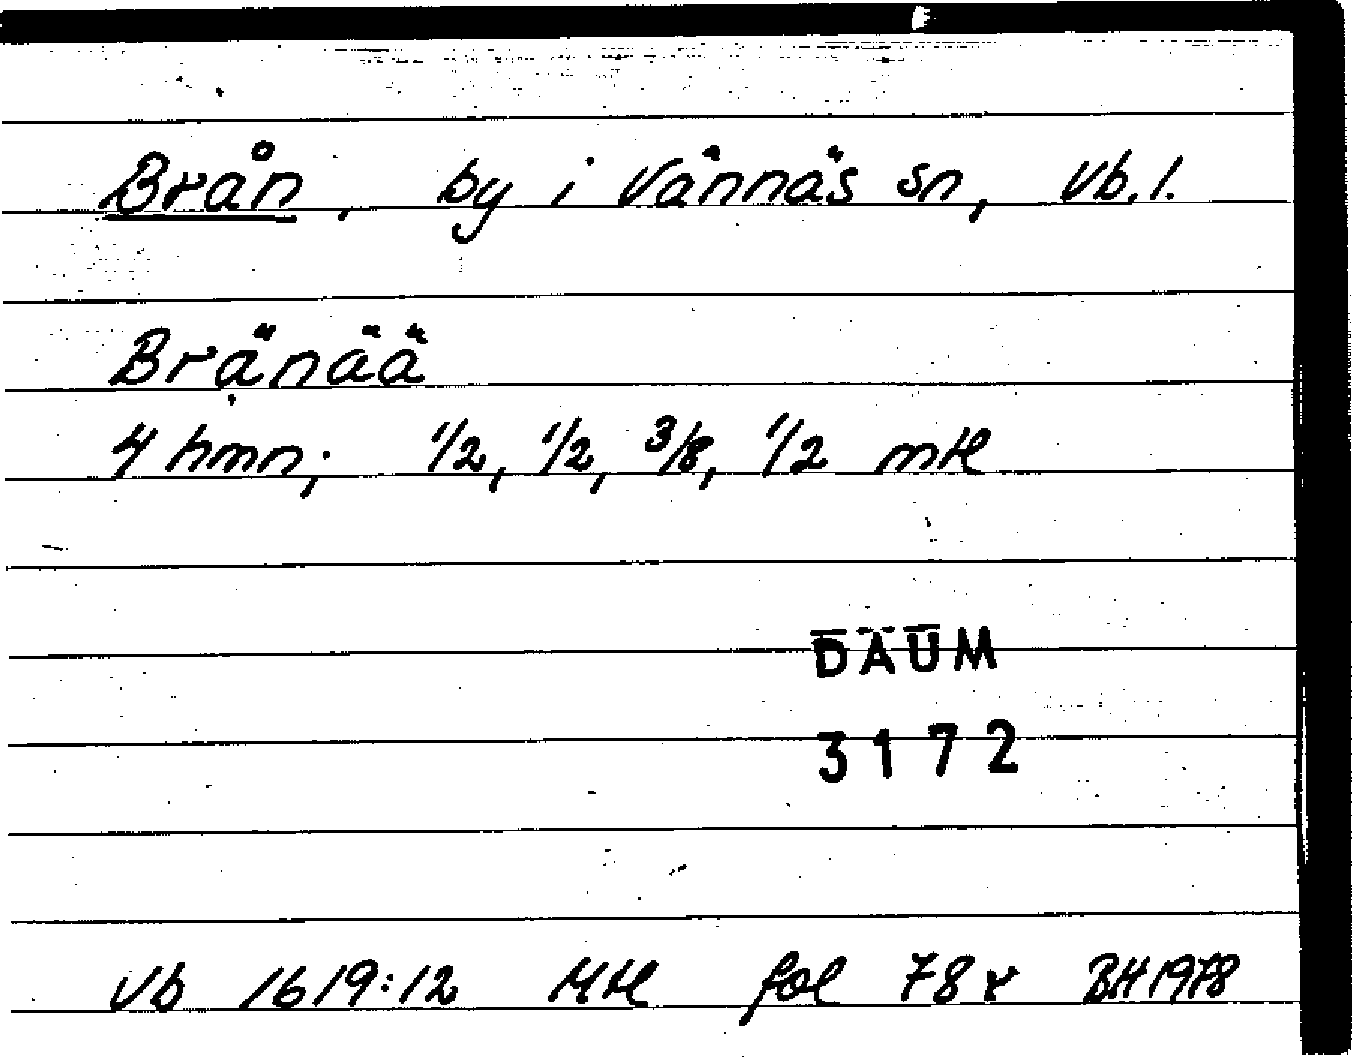 Brån, by i Vännäs sn, Vb. l.
Bränää
4 hmn; 1/2, 1/2, 3/8, 1/2 mtl
DAUM
3172
Vb 1619:12 Mtl fol 78 r BH 1978